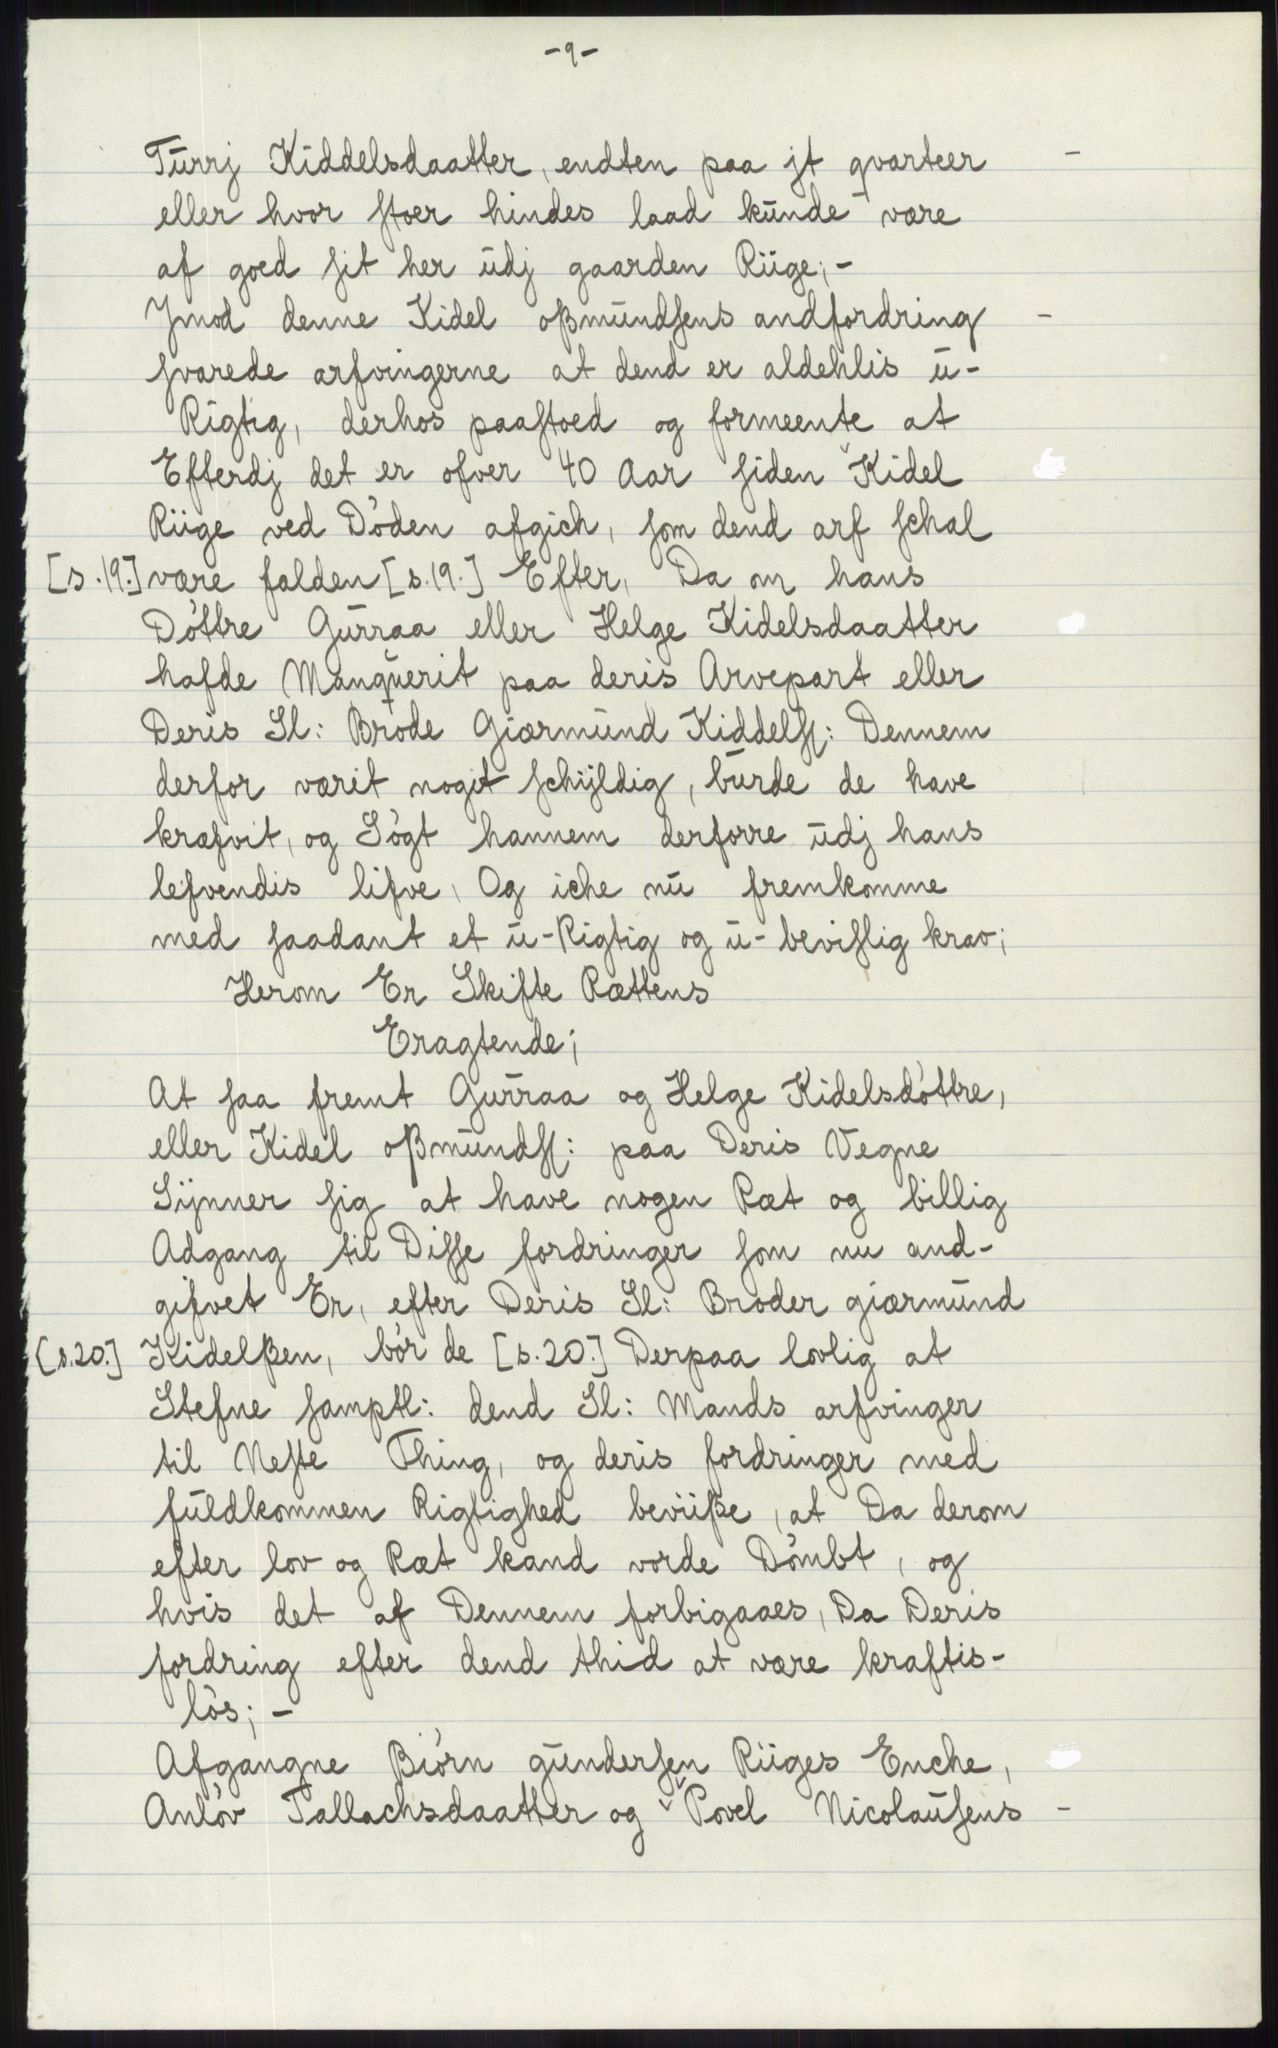 -9-
Turrj Kiddelsdaatter, endten paa jt qvarteer -
eller hvor stoer hindes laad kunde være
af goed sit her udj gaarden Riige; -
Jmod denne Kidel oßmundsens andfordring -
svarede arfvingerne at dend er aldehlis u-
Rigtig, derhos paastoed og formeente at
Efterdj det er ofver 40 Aar siden Kidel
Riige ved Döden afgich, som dend arf schal
[s.19.] være falden [s.19.] Efter, Da om hans
Döttre Gurraa eller Helge Kidelsdaatter
hafde Manquerit paa deris Arvepart eller
Deris Sl: Brode Giærmund Kiddelss: Dennem
derfor værit nogit schÿldig, burde de have
kræfvit, og Sögt hannem derforre udj hans
lefvendis lifve, Og iche nu fremkomme
med saadant et u-Rigtig og u-bevislig krav;
Herom Er Skifte Rættens
Eragtende;
At saa fremt Gurraa og Helge Kidelsdöttre,
eller Kidel oßmundss: paa Deris Vegne
Sÿnner sig at have nogen Ræt og billig
Adgang til Disse fordringer som nu and-
gifvet Er, efter Deris Sl: Broder giærmund
[s.20.] Kidelßen, bör de [s.20.] Derpaa lovlig at
Stefne samptl: dend Sl: Mands arfvinger
til Neste Thing, og deris fordringer med
fuldkommen Rigtighed beviiße, at Da derom
efter lov og Ræt kand vorde Dömbt, og
hvis det af Dennem forbigaaes, Da Deris
fordring efter dend thid at være kraftis-
lös; -
Afgangne Biörn gundersen Riiges Enche,
Anlöv Tallachsdaatter og Povel Nicolausens -